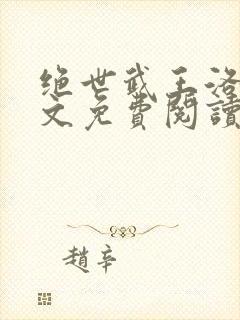 绝世武王洛
文免費閱讀
趙辛